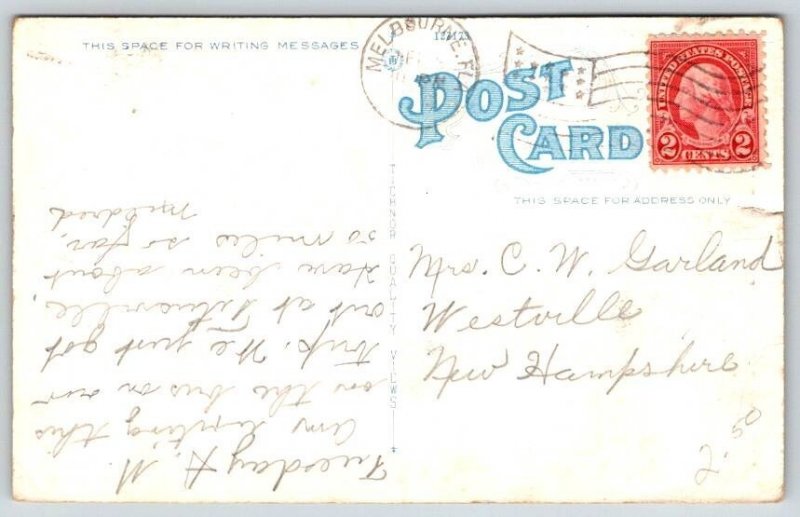 THIS SPACE FOR WRITING MESSAGES
MELBOURNE, FL
POST
CARD
UNITED STATES POSTAGE
2 CENTS 2
THIS SPACE FOR ADDRESS ONLY
TICHNOR QUALITY VIEWS
Mrs. C. W. Garland
Westville
New Hampshire
2.50
Tuesday A. M.
am writing this
on the bus on our
trip. We just got
out at Titusville
Have been about
50 miles so far,
Mildred